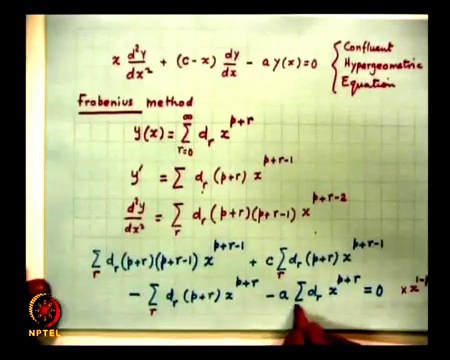 x d²y/dx² + (c-x) dy/dx - a y(x) = 0 { Confluent Hypergeometric Equation
Frobenius method
y(x) = ∑_{r=0}^{∞} d_r x^{p+r}
y' = ∑ d_r (p+r) x^{p+r-1}
d²y/dx² = ∑_r d_r (p+r)(p+r-1) x^{p+r-2}
∑_r d_r (p+r)(p+r-1) x^{p+r-1} + c ∑_r d_r (p+r) x^{p+r-1}
- ∑_r d_r (p+r) x^{p+r} - a ∑ d_r x^{p+r} = 0 × x^{1-p}
NPTEL